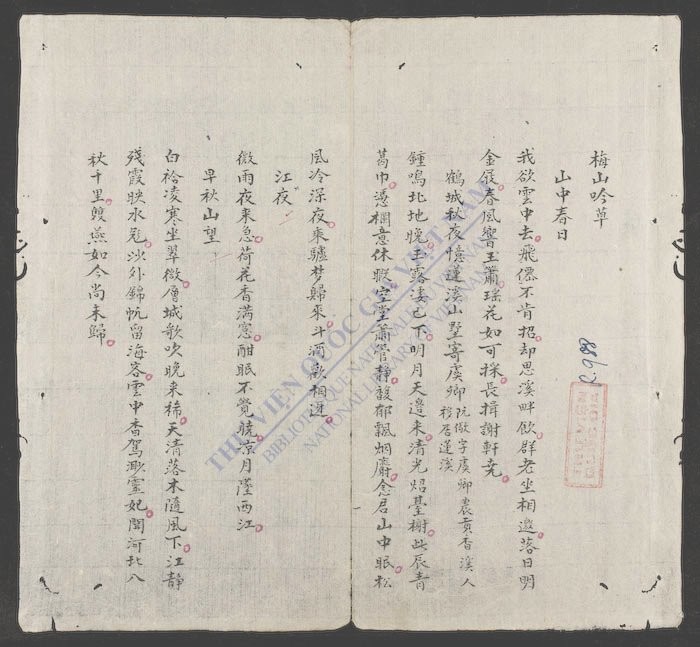 梅山吟草
山中春日
我欲雲中去飛僊不肯招却思溪畔飲群老坐相邀落日明
金屐春風響玉簫瑤花如可採長揖謝軒尭
鶴城秋夜憶蓮溪山墅寄虞卿 阮做字虞卿農貢香溪人
移居蓮溪
鍾鳴北地晚玉露凄已下明月天邊来清光炤臺榭此辰青
葛巾憑欄意休暇空堂蕭管靜馥郁飄烟麝念君山中眠松
風冷深夜乘驢梦歸來斗酒歡相迓
江夜
微雨夜来急荷花香满窓酣眠不覺凉月墮西江
早秋山望
白袷凌寒坐翠微層城歌吹晚来稀天清落木隨風下江静
殘霞映水飛沙外錦帆留海客雲中香駕靈妃河北八
秋千里燕如今尚未歸
R.988
THƯ VIỆN QUỐC GIA VIỆT NAM
BIBLIOTHÈQUE NATIONALE DU VIETNAM
NATIONAL LIBRARY OF VIETNAM